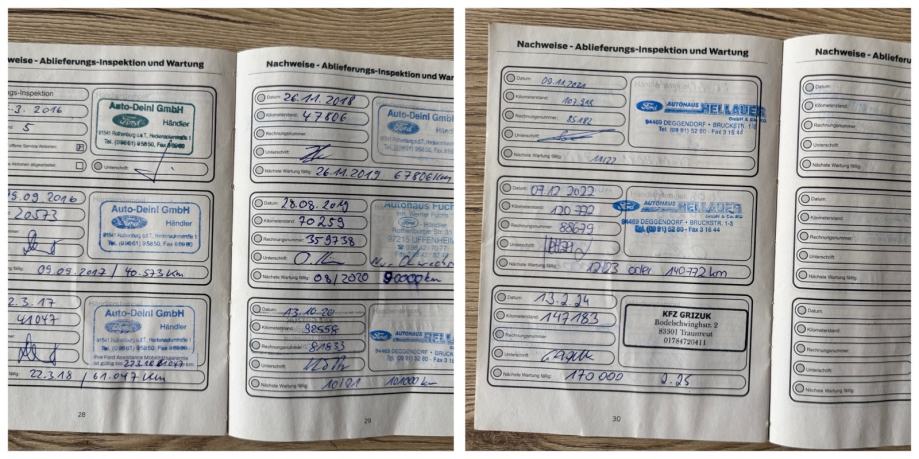 weise - Ablieferungs-Inspektion und Wartung
gs-Inspektion
.3. 2016
5
Auto-Deinl GmbH
Ford
Händler
91541 Rothenburg o.d.T.,
Tel. (09861) 95850, Fax
Unterschrift:
5.09.2016
20573
Auto-Deinl GmbH
Händler
91541 Rothenburg o.d.T.,
Tel. (09861) 95850, Fax
09.09.2017 / 40.573 Km
2.3.17
41047
Auto-Deinl GmbH
Händler
22.3.18 / 61.047 Km
28
Nachweise - Ablieferungs-Inspektion und War
Datum: 26.11.2018
Kilometerstand: 47806
Rechnungsnummer:
Unterschrift:
Nächste Wartung fällig: 26.11.2019 67806Km
Auto-Deinl Gmb
Ford
Händl
Datum: 28.08.2019
Kilometerstand: 70259
Rechnungsnummer: 359738
Unterschrift:
Nächste Wartung fällig: 08/2020 90000km
Autohaus Fuch
Inh. Werner Fuchs
Ford - Händler
97215 UFFENHEIM
Datum: 13.10.20
Kilometerstand:
Rechnungsnummer: 81833
Unterschrift:
Nächste Wartung fällig: 10/21 101000 km
AUTOHAUS
94469 DEGGENDORF • BRUCK
29
Nachweise - Ablieferungs-Inspektion und Wartung
Datum: 09.11.2021
Kilometerstand: 107.915
Rechnungsnummer: 85182
Unterschrift:
Nächste Wartung fällig: 11/22
Ford AUTOHAUS HELLAUER
GmbH & Co. KG
94469 DEGGENDORF • BRUCKSTR. 1-3
Tel. (09 91) 52 80 - Fax 3 16 44
Datum: 07.12.2022
Kilometerstand: 120 772
Rechnungsnummer: 88679
Unterschrift:
Nächste Wartung fällig: 12/23 oder 140772 km
Ford AUTOHAUS HELLAUER
GmbH & Co. KG
94469 DEGGENDORF • BRUCKSTR. 1-3
Tel. (09 91) 52 80 - Fax 3 16 44
Datum: 13.2.24
Kilometerstand: 147183
Rechnungsnummer:
Unterschrift:
Nächste Wartung fällig: 170 000 2.25
KFZ GRIZUK
Bodelschwinghstr. 2
83301 Traunreut
01784720411
30
Nachweise - Ablieferungs-
Datum:
Kilometerstand:
Rechnungsnummer:
Unterschrift:
Nächste Wartung fällig:
Datum:
Kilometerstand:
Rechnungsnummer:
Unterschrift:
Nächste Wartung fällig:
Datum:
Kilometerstand:
Rechnungsnummer:
Unterschrift:
Nächste Wartung fällig: